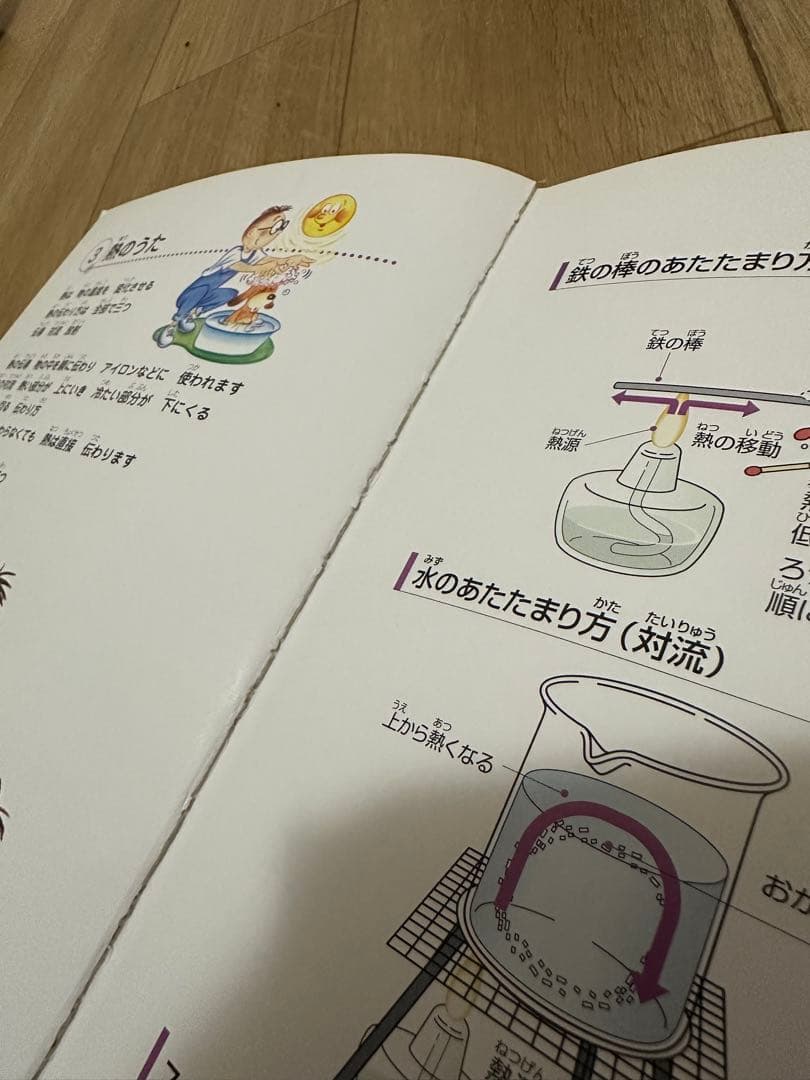 3 熱のうた
熱は 物の温度を 変化させる
熱の伝わり方は 全部で三つ
伝導 対流 放射
熱の伝導 物の中を順に伝わり アイロンなどに 使われます
の対流 熱い部分が 上にいき 冷たい部分が 下にくる
伝わり方
からなくても 熱は直接 伝わります
鉄の棒のあたたまり方
鉄の棒
熱源
熱の移動
順に
水のあたたまり方(対流)
上から熱くなる
おか
熱源